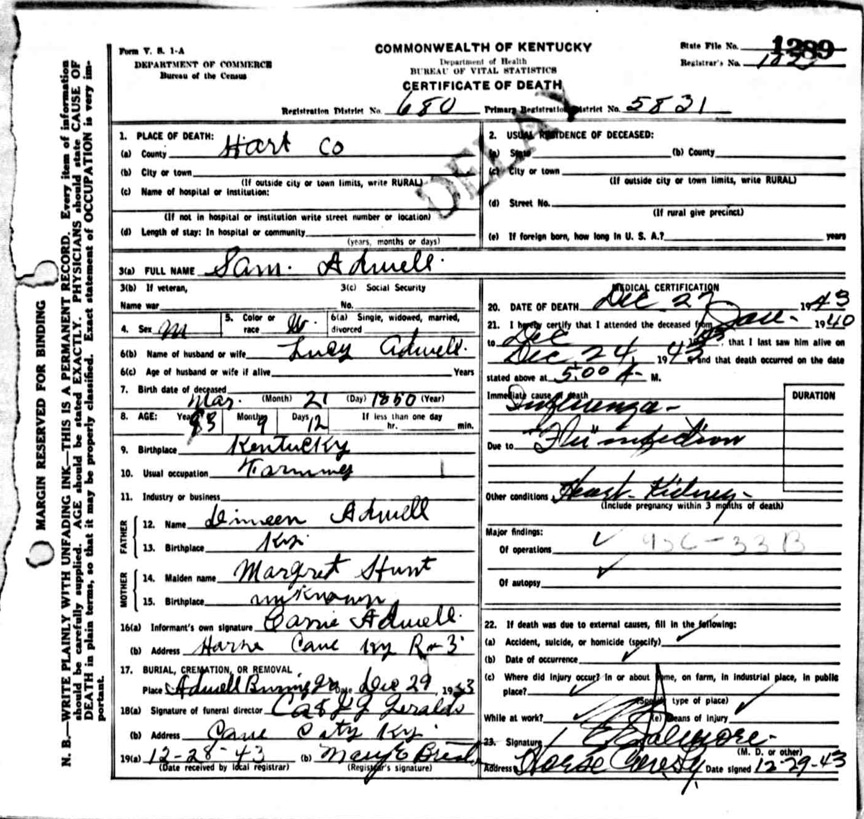 Form V. S. 1-A
DEPARTMENT OF COMMERCE
Bureau of the Census
COMMONWEALTH OF KENTUCKY
Department of Health
BUREAU OF VITAL STATISTICS
CERTIFICATE OF DEATH
State File No. 1289
Registrar's No.
Registration District No. 680 Primary Registration District No. 5831
DELAY
MARGIN RESERVED FOR BINDING
N. B.—WRITE PLAINLY WITH UNFADING INK—THIS IS A PERMANENT RECORD. Every item of information
should be carefully supplied. AGE should be stated EXACTLY. PHYSICIANS should state CAUSE OF
DEATH in plain terms, so that it may be properly classified. Exact statement of OCCUPATION is very im-
portant.
1. PLACE OF DEATH:
(a) County Hart Co
(b) City or town
(If outside city or town limits, write RURAL)
(c) Name of hospital or institution:
(If not in hospital or institution write street number or location)
(d) Length of stay: In hospital or community
(years, months or days)
2. USUAL RESIDENCE OF DECEASED:
(a) State (b) County
(c) City or town
(If outside city or town limits, write RURAL)
(d) Street No.
(If rural give precinct)
(e) If foreign born, how long in U. S. A.? years
3(a) FULL NAME Sam. Adwell.
3(b) If veteran, 3(c) Social Security
Name war No.
4. Sex M 5. Color or race W. 6(a) Single, widowed, married, divorced
6(b) Name of husband or wife Lucy Adwell.
6(c) Age of husband or wife if alive Years
7. Birth date of deceased Mar. (Month) 21 (Day) 1850 (Year)
8. AGE: Years 93 Months 9 Days 12 If less than one day
hr. min.
9. Birthplace Kentucky
10. Usual occupation
11. Industry or business
FATHER
12. Name Adwell
13. Birthplace Ky.
MOTHER
14. Maiden name Margret Hunt
15. Birthplace unknown
16(a) Informant's own signature Carrie Adwell.
(b) Address Horse Cave Ky R-3
17. BURIAL, CREMATION, OR REMOVAL
Place Adwell Date Dec 29 1943
18(a) Signature of funeral director Geralds
(b) Address Cave City Ky.
19(a) 12-28-43 (b) Mary E
(Date received by local registrar) (Registrar's signature)
MEDICAL CERTIFICATION
20. DATE OF DEATH Dec 27 1943
21. I hereby certify that I attended the deceased from Jan- 1940
to Dec , that I last saw him alive on
Dec 24, 1943 and that death occurred on the date
stated above at 5:00 A- M.
Immediate cause of death DURATION
Influenza-
Due to Flu infection
Other conditions Heart- Kidney-
(Include pregnancy within 3 months of death)
Major findings:
Of operations ✓
Of autopsy ✓
22. If death was due to external causes, fill in the following:
(a) Accident, suicide, or homicide (specify) ✓
(b) Date of occurrence ✓
(c) Where did injury occur? In or about home, on farm, in industrial place, in public
place? ✓
(Specify type of place)
While at work? ✓ (e) Means of injury ✓
23. Signature
(M. D. or other)
Address Horse Cave Ky Date signed 12-29-43